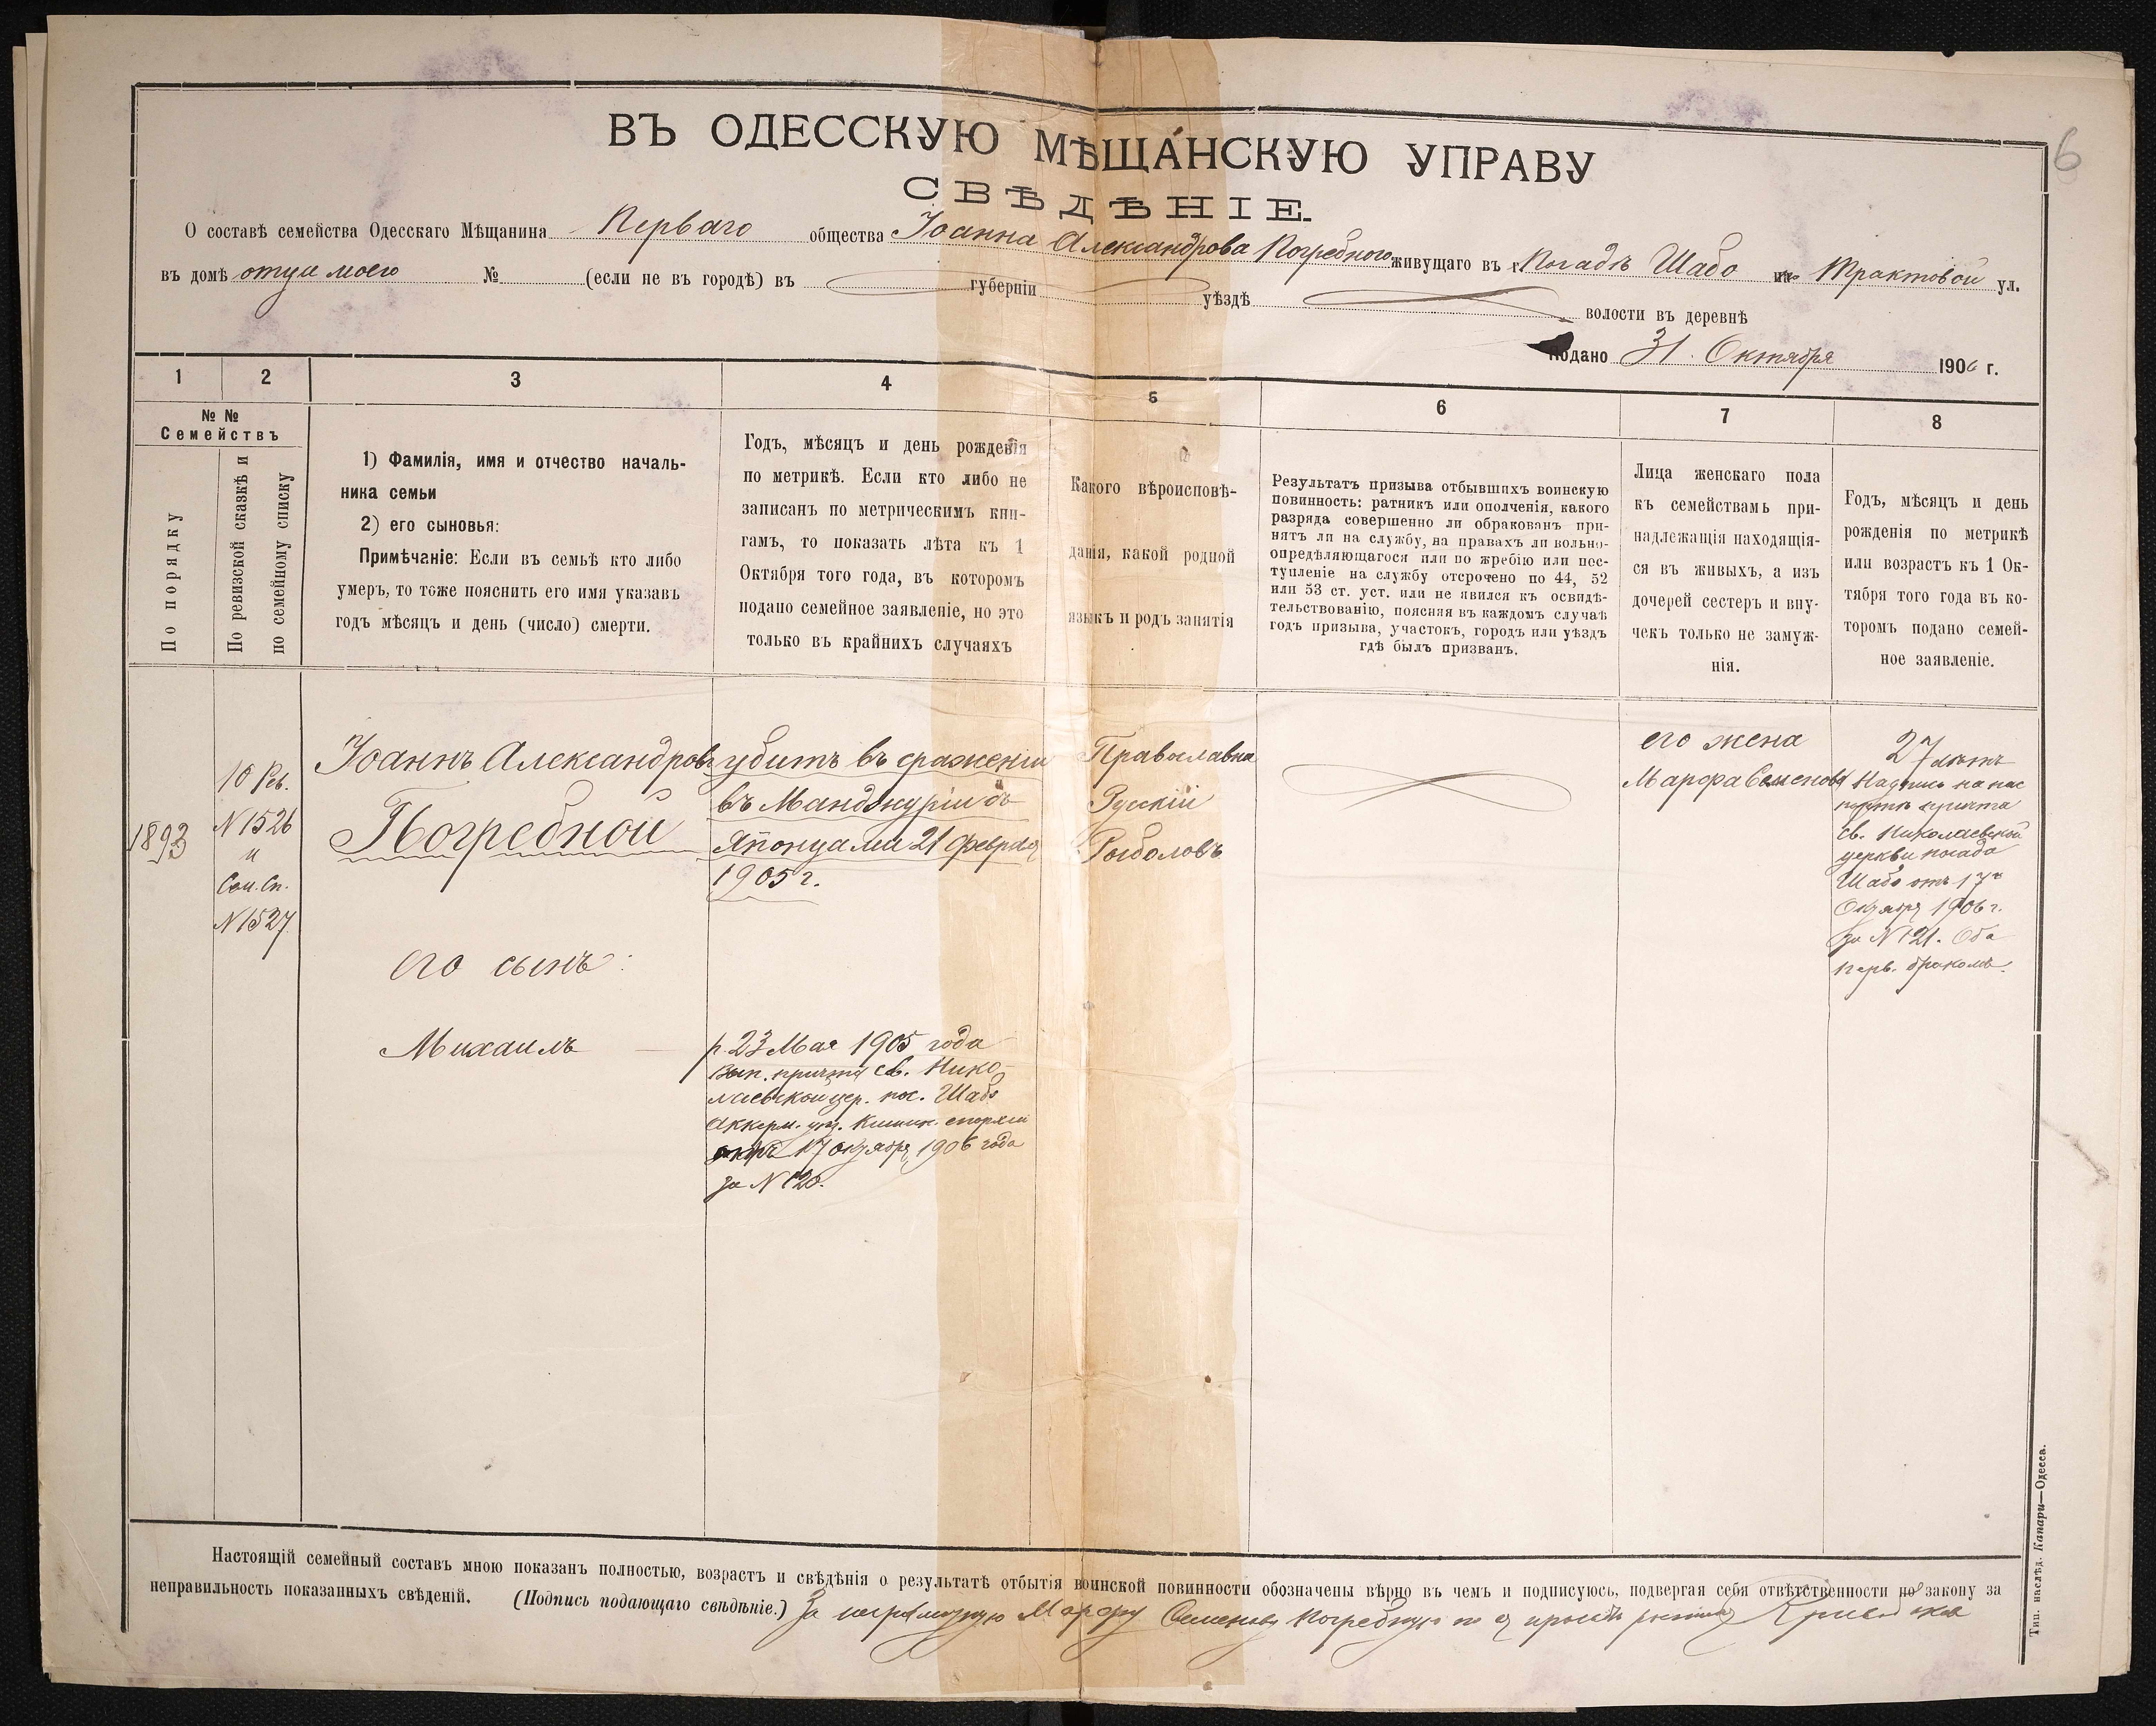 6
ВЪ ОДЕССКУЮ МѢЩАНСКУЮ УПРАВУ
СВѢДѢНІЕ.
О составѣ семейства Одесскаго Мѣщанина Перваго общества Іоанна Александрова Погребного живущаго въ г. Посадѣ Шабо на Трактовой ул.
въ домѣ отца моего № (если не въ городѣ) въ губерніи уѣздѣ волости въ деревнѣ
Подано 31 Октября 1906 г.
1 2 3 4 5 6 7 8
№ №
Семействъ
По порядку
По ревизской сказкѣ и
по семейному списку
1) Фамилія, имя и отчество началь-
ника семьи
2) его сыновья:
Примѣчаніе: Если въ семьѣ кто либо
умеръ, то тоже пояснить его имя указавъ
годъ мѣсяцъ и день (число) смерти.
Годъ, мѣсяцъ и день рожденія
по метрикѣ. Если кто либо не
записанъ по метрическимъ кни-
гамъ, то показать лѣта къ 1
Октября того года, въ которомъ
подано семейное заявленіе, но это
только въ крайнихъ случаяхъ
Какого вѣроисповѣ-
данія, какой родной
языкъ и родъ занятія
Результатъ призыва отбывшихъ воинскую
повинность: ратникъ или ополченія, какого
разряда совершенно ли обракованъ при-
нятъ ли на службу, на правахъ ли вольно-
опредѣляющагося или по жребію или пос-
тупленіе на службу отсрочено по 44, 52
или 53 ст. уст. или не явился къ освидѣ-
тельствованію, поясняя въ каждомъ случаѣ
годъ призыва, участокъ, городъ или уѣздъ
гдѣ былъ призванъ.
Лица женскаго пола
къ семействамъ при-
надлежащія находящія-
ся въ живыхъ, а изъ
дочерей сестеръ и вну-
чекъ только не замуж-
нія.
Годъ, мѣсяцъ и день
рожденія по метрикѣ
или возрастъ къ 1 Ок-
тября того года въ ко-
торомъ подано семей-
ное заявленіе.
1893
10 Рев.
N 1526
и
Сем. Сп.
N 1527
Іоаннъ Александровъ
Погребной
его сынъ:
Михаилъ
убитъ въ сраженіи
въ Манджуріи съ
Японцами 21 февраля
1905 г.
р. 23 Мая 1905 года
вып. причта св. Нико-
лаевской цер. пос. Шабо
Аккерм. уѣз. Кишин. епархіи
отъ 17 октября 1906 года
за N 120.
Православна
Русскій
Рыболовъ
его жена
Марфа Семенова
27 лѣтъ
Надпись на пас
портѣ причта
св. Николаевской
церкви посада
Шабо отъ 17
Октября 1906 г.
за N 121. Оба
перв. бракомъ.
Настоящій семейный составъ мною показанъ полностью, возрастъ и свѣдѣнія о результатѣ отбытія воинской повинности обозначены вѣрно въ чемъ и подписуюсь, подвергая себя отвѣтственности по закону за
неправильность показанныхъ свѣдѣній. (Подпись подающаго свѣдѣніе.) За неграмотную Марфу Семенову Погребную по ея просьбѣ
Тип. наслѣд. Капари—Одесса.